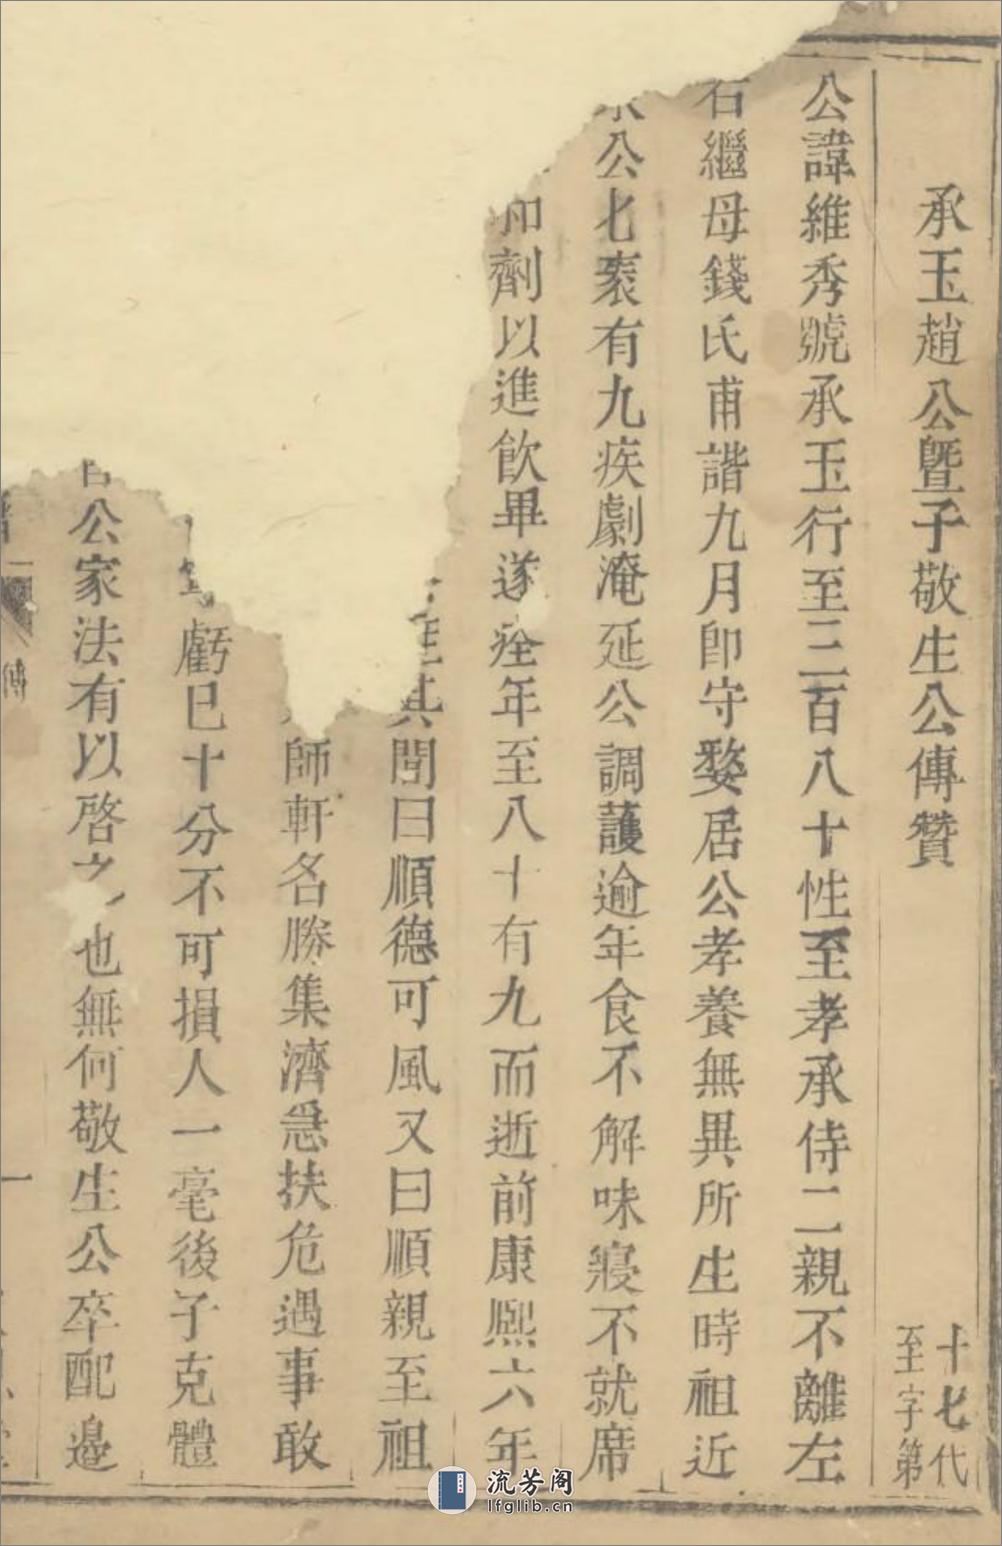 承玉趙公曁子敬生公傳贊
十七代
至字第
公諱維秀號承玉行至三百八十性至孝承侍二親不離左
右繼母錢氏甫諧九月卽守婺居公孝養無異所生時祖近
公七袠有九疾劇淹延公調護逾年食不解味寢不就席
和劑以進飲畢遂痊年至八十有九而逝前康熙六年
其閭曰順德可風又曰順親至祖
師軒名勝集濟急扶危遇事敢
虧已十分不可損人一毫後子克體
公家法有以啓之也無何敬生公卒配邊
傳
一
流芳阁
lfglib.cn